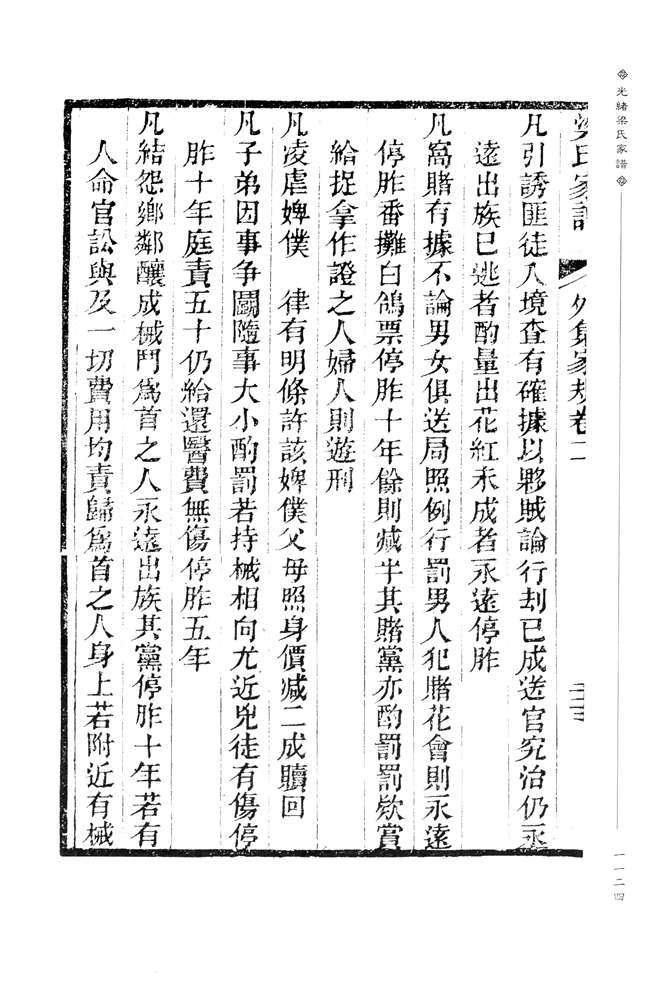 光緒梁氏家譜
梁氏家譜
外集家規卷二
三十三
凡引誘匪徒入境查有確據以夥賊論行刦已成送官究治仍永
遠出族已逃者酌量出花紅未成者永遠停胙
凡窩賭有據不論男女俱送局照例行罰男人犯賭花會則永遠
停胙番攤白鴿票停胙十年餘則減半其賭黨亦酌罰罰欵賞
給捉拿作證之人婦人則遊刑
凡凌虐婢僕　律有明條許該婢僕父母照身價減二成贖回
凡子弟因事争鬭隨事大小酌罰若持械相向尤近兇徒有傷停
胙十年庭責五十仍給還醫費無傷停胙五年
凡結怨鄉鄰釀成械鬥為首之人永遠出族其黨停胙十年若有
人命官訟與及一切費用均責歸為首之人身上若附近有械
一一二四